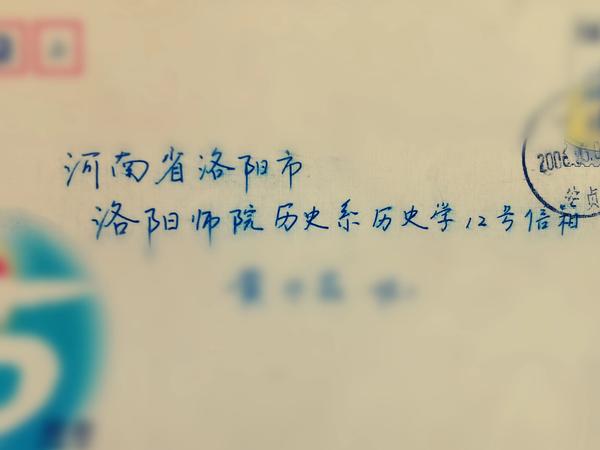 河南省洛阳市
洛阳师院历史系历史学12号信箱
2006
安贞